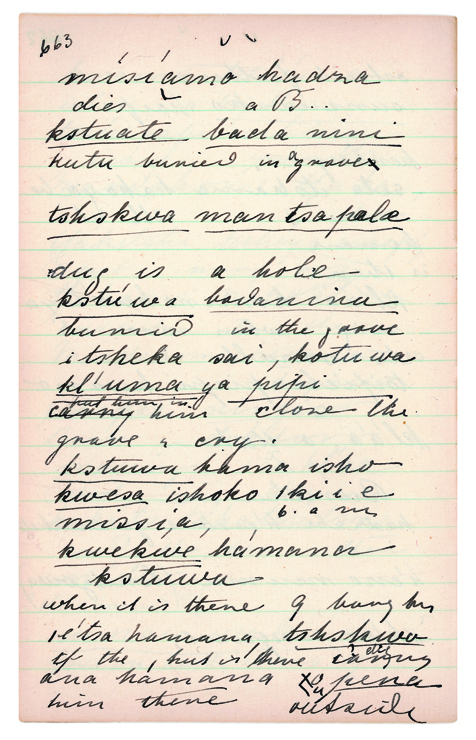 663
mísíamo hadza
dies a B..
kstuate bada nini
hutu buried in a grave
tshskwa man tsa pala
dug is a hole
kstúwa badanina
buried in the grave
itsheka sai, kotuwa
kl'uma ya pipi
put him in
carry him close the
grave " cry.
kstuwa hama isho
kwesa ishoko ikiie
missia, b. a m
kwekwe hámana
kstuwa
when it is there I bury him
iétsa hamana, tshskwa
if the, hut is there dig
ana hamana pena
him there outside